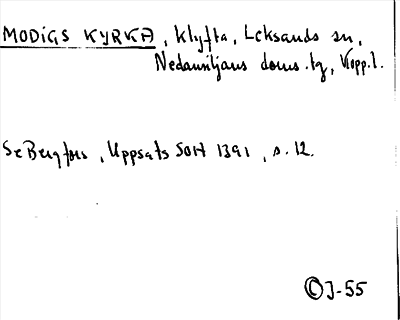 MODIGS KYRKA, klyfta, Leksands sn,
Nedansiljans doms.tg, Kopp.l.
Se Bergfors, Uppsats SOH 1391, s. 12.
© J-55